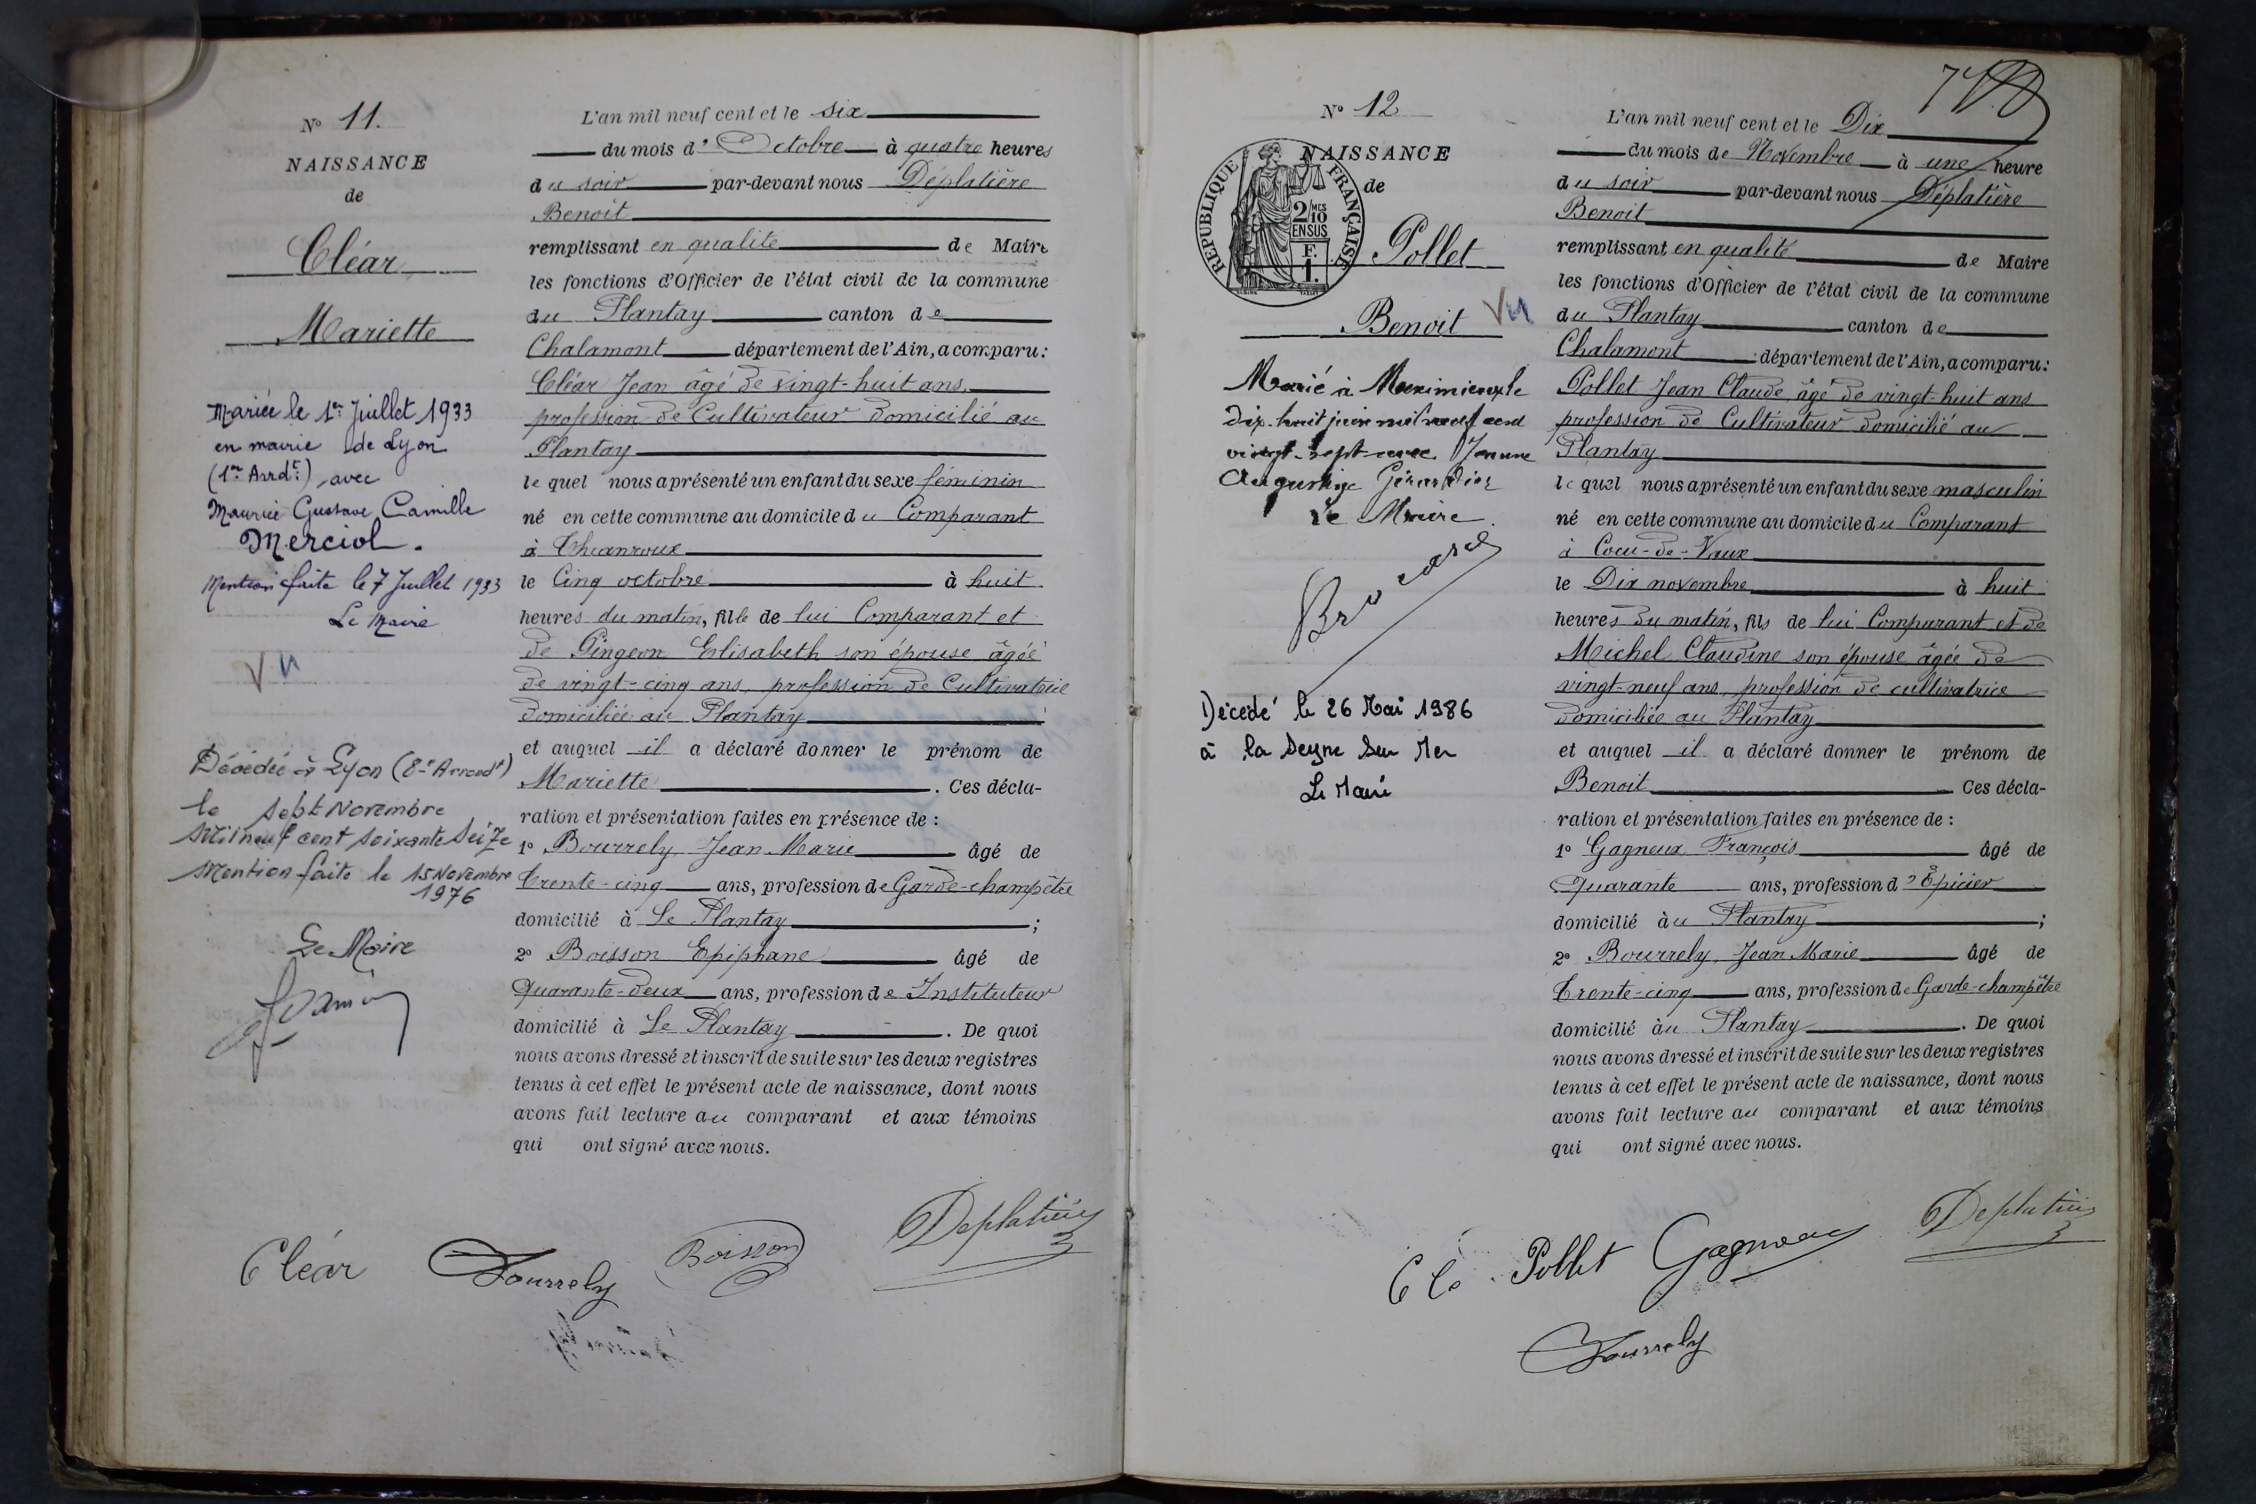 N° 11.
NAISSANCE
de
Cléar
Mariette
Mariée le 1er Juillet 1933
en mairie de Lyon
(1er Arrdt), avec
Maurice Gustave Camille
Merciol.
Mention faite le 7 Juillet 1933
Le Maire
VU
Décédée à Lyon (8e Arrondt)
le sept Novembre
Mil neuf cent soixante seize
Mention faite le 15 Novembre
1976
Le Maire
L'an mil neuf cent et le six
du mois d'Octobre à quatre heures
du soir par-devant nous Déplatière
Benoit
remplissant en qualité de Maire
les fonctions d'Officier de l'état civil de la commune
du Plantay canton de
Chalamont département de l'Ain, a comparu:
Cléar Jean âgé de vingt-huit ans
profession de Cultivateur domicilié au
Plantay
lequel nous a présenté un enfant du sexe féminin
né en cette commune au domicile du Comparant
à Chanroux
le Cinq octobre à huit
heures du matin, fille de lui Comparant et
de Pingeon Elisabeth son épouse âgée
de vingt-cinq ans, profession de Cultivatrice
domiciliée au Plantay
et auquel il a déclaré donner le prénom de
Mariette. Ces décla-
ration et présentation faites en présence de :
1° Bourrely Jean Marie âgé de
trente-cinq ans, profession de Garde-champêtre
domicilié à Le Plantay ;
2° Boisson Epiphane âgé de
Quarante-deux ans, profession de Instituteur
domicilié à Le Plantay. De quoi
nous avons dressé et inscrit de suite sur les deux registres
tenus à cet effet le présent acte de naissance, dont nous
avons fait lecture au comparant et aux témoins
qui ont signé avec nous.
Cléar Bourrely Boisson Deplatière
N° 12
NAISSANCE
de
RÉPUBLIQUE FRANÇAISE
2/10 MES
EN SUS
F.
1.
Pollet
Benoit
VU
Marié à Meximieux le
dix-huit juin mil neuf cent
vingt-sept avec Jeanne
Augustine Girardier
Le Maire
Décédé le 26 Mai 1986
à la Seyne Sur Mer
Le Maire
L'an mil neuf cent et le Dix
du mois de Novembre à une heure
du soir par-devant nous Déplatière
Benoit
remplissant en qualité de Maire
les fonctions d'Officier de l'état civil de la commune
du Plantay canton de
Chalamont département de l'Ain, a comparu:
Pollet Jean Claude âgé de vingt-huit ans
profession de Cultivateur domicilié au
Plantay
lequel nous a présenté un enfant du sexe masculin
né en cette commune au domicile du Comparant
à Cocu-de-Vaux
le Dix novembre à huit
heures du matin, fils de lui Comparant et de
Michel Claudine son épouse âgée de
vingt-neuf ans, profession de cultivatrice
domiciliée au Plantay
et auquel il a déclaré donner le prénom de
Benoit Ces décla-
ration et présentation faites en présence de :
1° Gagneux François âgé de
Quarante ans, profession d'Épicier
domicilié àu Plantay ;
2° Bourrely Jean Marie âgé de
trente-cinq ans, profession de Garde-champêtre
domicilié àu Plantay. De quoi
nous avons dressé et inscrit de suite sur les deux registres
tenus à cet effet le présent acte de naissance, dont nous
avons fait lecture au comparant et aux témoins
qui ont signé avec nous.
Pollet Gagneux Deplatière
Bourrely